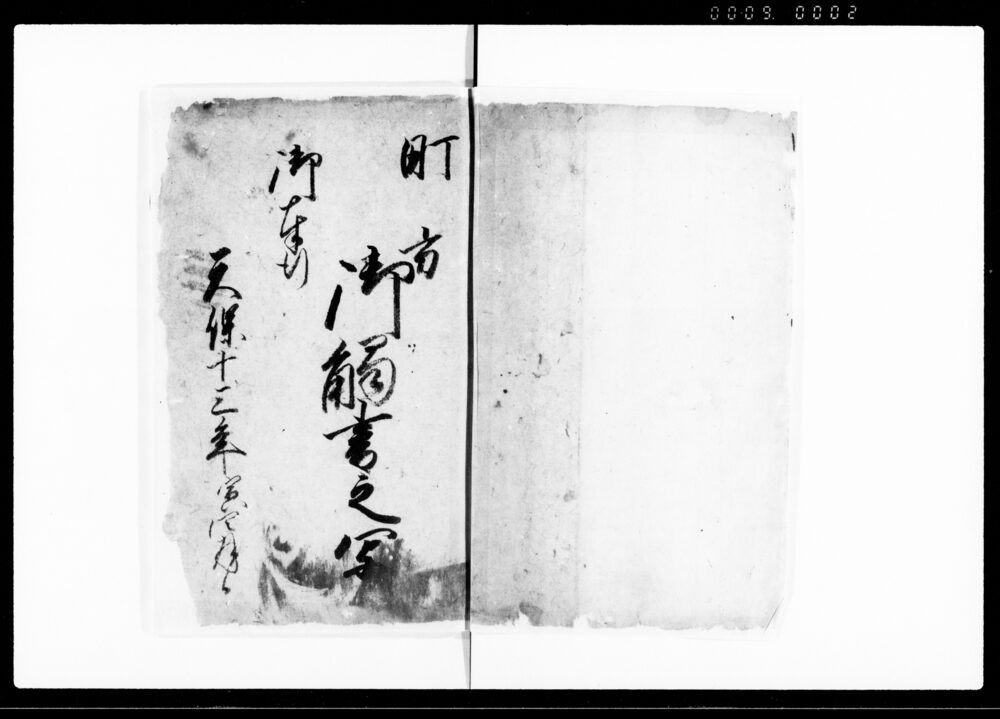 0009. 0002
町方
御觸書之写
御奉行
天保十三年寅